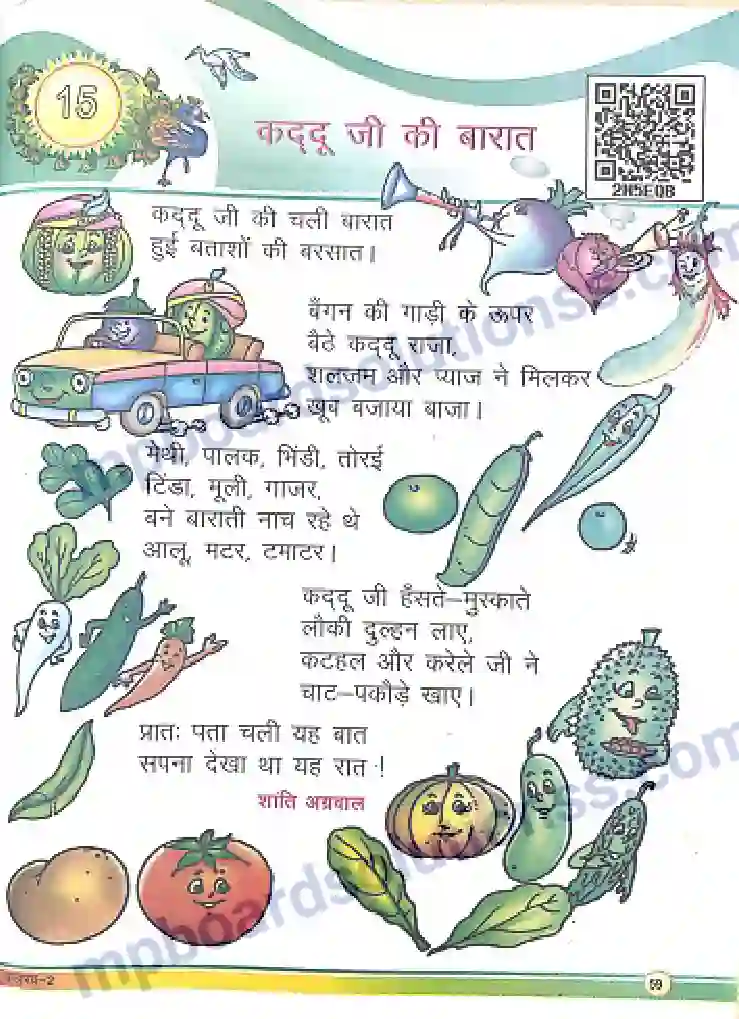 15
कद्दू जी की बारात
2H5EQB
कद्दू जी की चली बारात
हुई बताशों की बरसात।
बैंगन की गाड़ी के ऊपर
बैठे कद्दू राजा,
शलजम और प्याज ने मिलकर
खूब बजाया बाजा।
मेथी, पालक, भिंडी, तोरई
टिंडा, मूली, गाजर,
बने बाराती नाच रहे थे
आलू, मटर, टमाटर।
कद्दू जी हँसते–मुस्काते
लौकी दुल्हन लाए,
कटहल और करेले जी ने
चाट–पकौड़े खाए।
प्रातः पता चली यह बात
सपना देखा था यह रात !
शांति अग्रवाल
mpboardsolutionss.com
mpboardsolutionss.com
59